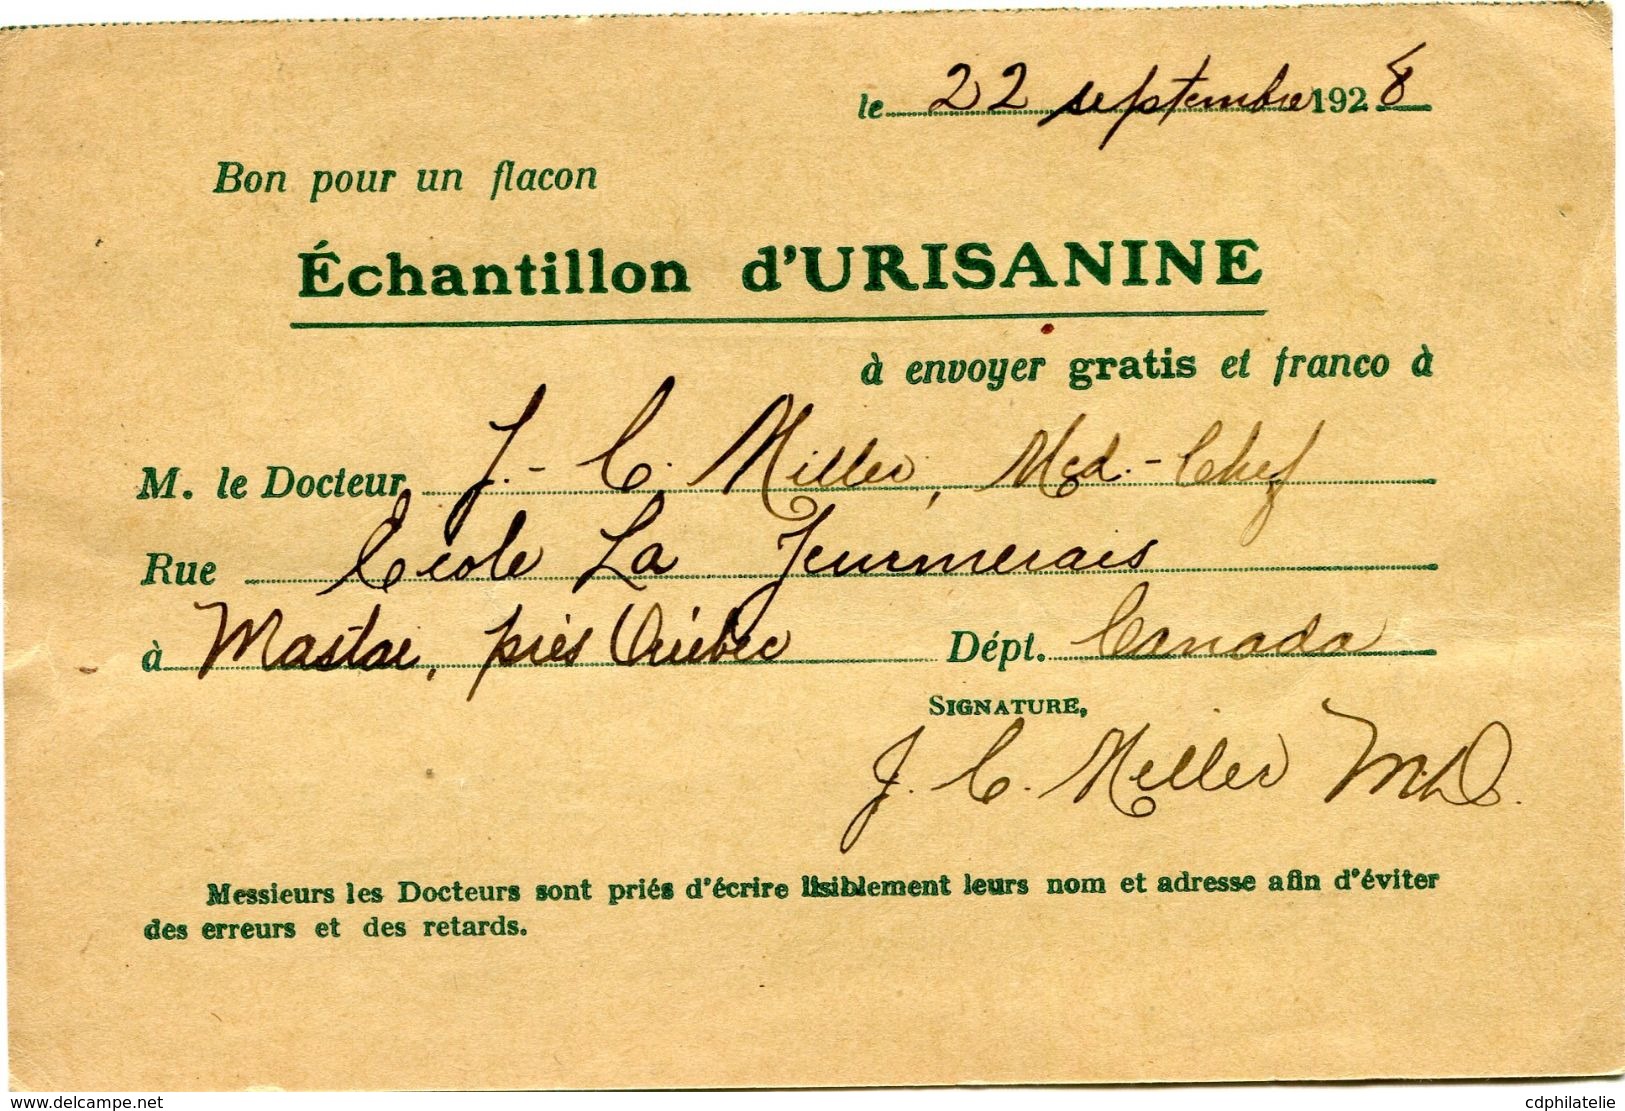 le 22 septembre 1928
Bon pour un flacon
Échantillon d'URISANINE
à envoyer gratis et franco à
M. le Docteur J.-C. Miller, Med.-Chef
Rue Ecole La Jemmerais
à Mastai, près Québec Dépt. Canada
SIGNATURE,
J. C. Miller M.D.
Messieurs les Docteurs sont priés d'écrire lisiblement leurs nom et adresse afin d'éviter
des erreurs et des retards.
www.delcampe.net cdphilatelie